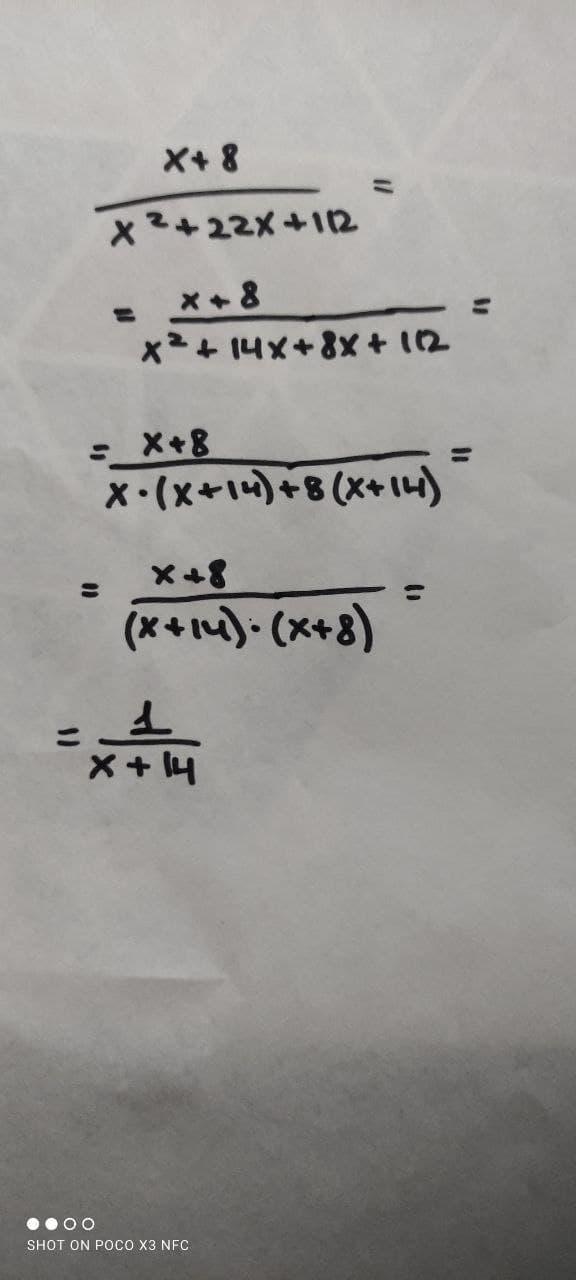 x+8
=
x²+22x+112
= x+8 =
x²+14x+8x+112
= x+8 =
x·(x+14)+8(x+14)
= x+8 =
(x+14)·(x+8)
= 1
x+14
SHOT ON POCO X3 NFC